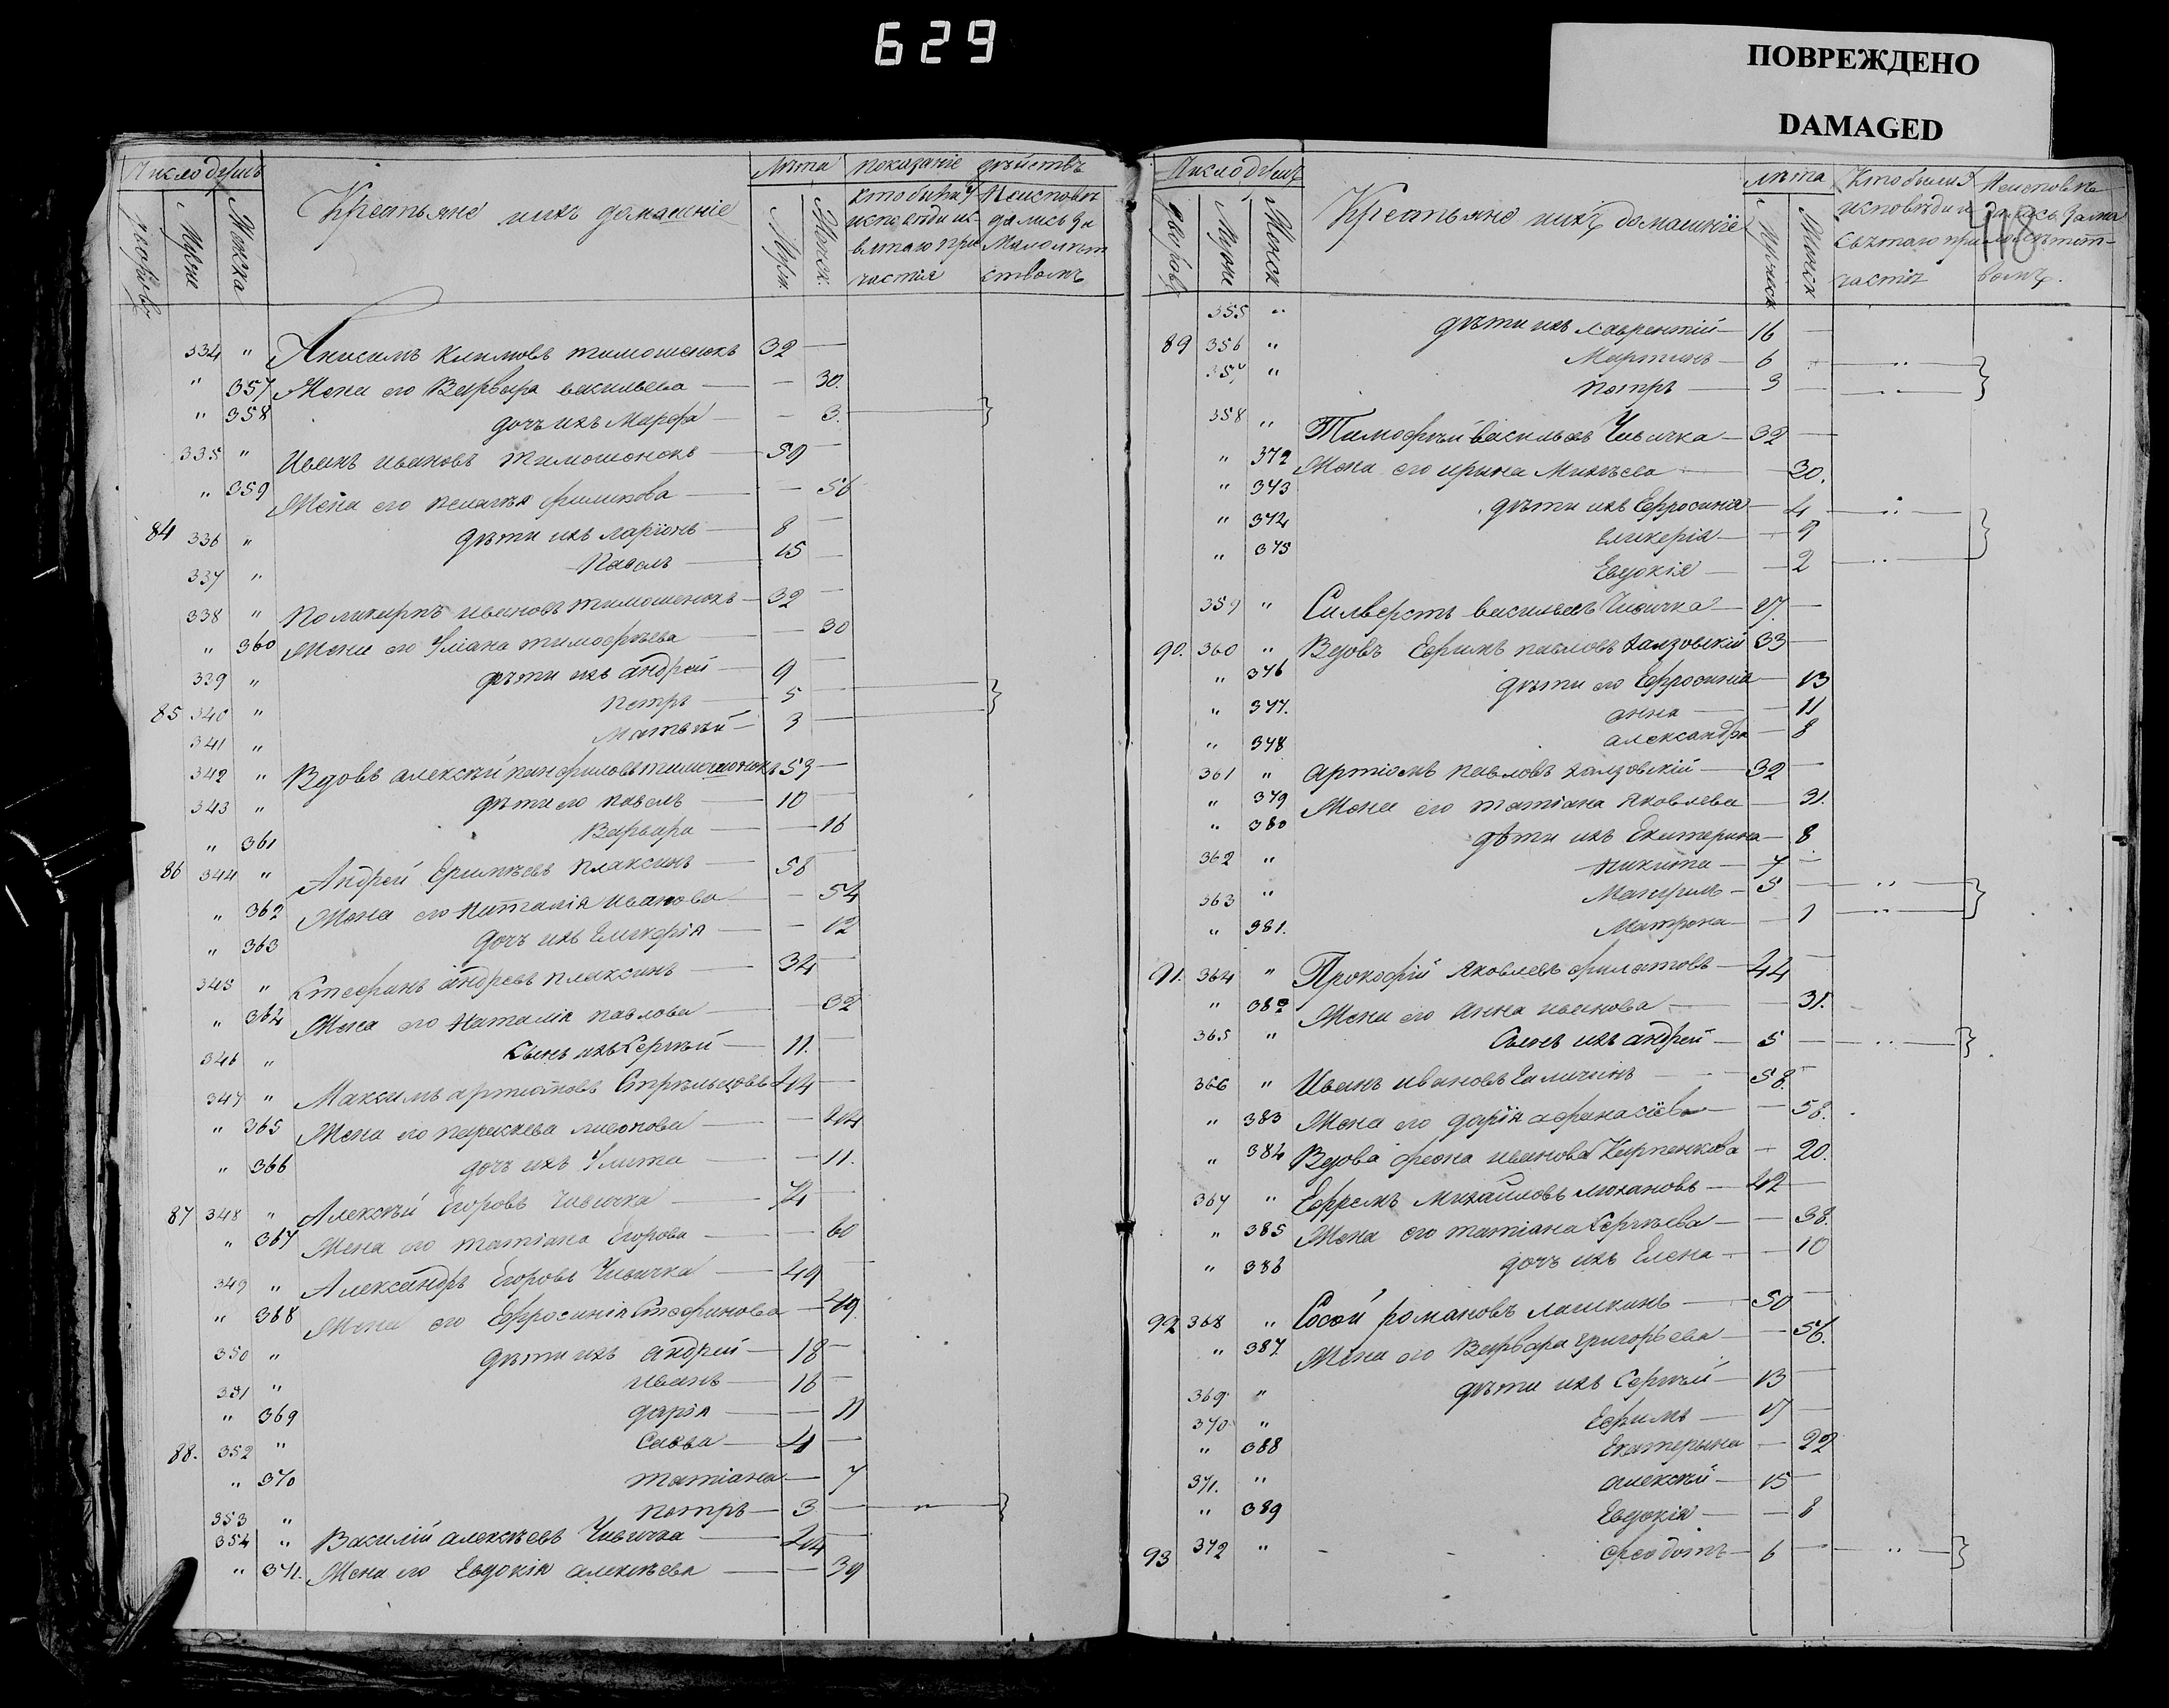 629
ПОВРЕЖДЕНО
DAMAGED
Число душъ
Крестьяне ихъ домашніе
лѣта показаніе дѣйствъ
334 " Анисимъ Климовъ тимошенокъ 32 —
" 357 Жена его Варвара васильева — 30.
" 358 дочь ихъ Марфа — 3.
335 " Иванъ ивановъ тимошонокъ —
" 359 Жена его Пелагѣя филипова — 56
84 336 " дѣти ихъ ларіонъ 8 —
337 " Павелъ 15 —
338 " Поликарпъ ивановъ тимошенокъ 32 —
" 360 Жена его Уліана тимофѣева — 30
339 " дѣти ихъ андрей 9 —
85 340 " петръ 5 —
341 " матвѣй 3 —
342 " Вдовъ алексѣй панфиловъ тимошонокъ 53 —
343 " дѣти его павелъ 10 —
" 361 Варвара — 16
86 344 " Андрей Еримѣевъ плаксинъ 58 —
" 362 Жена его Наталія иванова — 54
" 363 дочь ихъ Гликерія — 12
345 " Стефанъ андреевъ плаксинъ 34 —
" 364 Жена его Наталія павлова — 32
346 " Сынъ ихъ Сергѣй 11. —
347 " Максимъ артиомовъ Стрѣльцовъ 44 —
" 365 Жена его параскева — 44
" 366 дочь ихъ Улита — 11.
87 348 " Алексѣй Егоровъ Чивичка 74 —
" 367 Жена его татіана Егорова — 60
349 " Александръ Егоровъ Чивичка 49 —
" 368 Жена его Ефросинія Стефанова — 49.
350 " дѣти ихъ андрей 18 —
351 " иванъ 16 —
" 369 дарія — 11
88. 352 " Савва 4 —
" 370 татіана — 7
353 " петръ 3 —
354 " Василій алексѣевъ Чивичка 44 —
" 371. Жена его Евдокія алексѣева — 39
Число душъ
Крестьяне ихъ домашніе
лѣта
355 " дѣти ихъ лаврентій 16 —
89 356 " Мартинъ 6
357 " петръ 3 —
358 " Тимофѣй васильевъ Чивичка 32 —
" 372 Жена его ирина Михѣева — 30.
" 373 дѣти ихъ Ефросинія — 4
" 374 гликерія — 9
" 375 Евдокія — 2
359 " Силверстъ васильевъ Чивичка 27. —
90. 360 " Вдовъ Ефимъ павловъ 33 —
" 376 дѣти его Ефросинія — 13
" 377. анна — 11
" 378 александра — 8
361 " артіомъ павловъ 32 —
" 379 Жена его татіана Яковлева — 31.
" 380 дѣти ихъ Екатерина — 8
362 " никита 7 —
363 " Макримъ 5 —
" 381. Матрона — 1
91. 364 " Прокофій Яковлевъ филатовъ 44 —
" 382 Жена его Анна иванова — 31.
365 " Сынъ ихъ андрей 5 —
366 " Иванъ ивановъ Галичинъ 58. —
" 383 Жена его дарія афанасіева — 58.
" 384 Вдова феона иванова Карпенкова — 20.
367 " Ефремъ михайловъ 42 —
" 385 Жена его татіана Сергѣева — 38.
" 386 дочь ихъ Елена — 10
92 368 " Сосой романовъ лашкинъ 50 —
" 387. Жена его Варвара григорьева — 56.
369. " дѣти ихъ Сергѣй 13 —
370. " Ефимъ 17 —
" 388 Екатерина — 22
371. " алексѣй 15 —
" 389 Евдокія — 8
93 372 " феодотъ 6 —